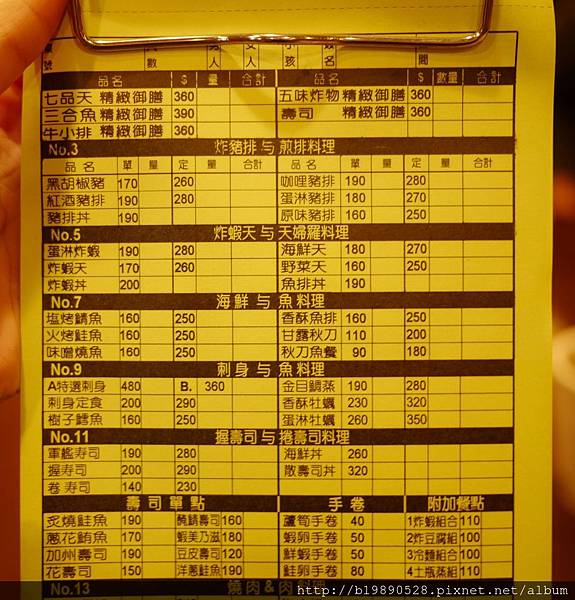 號 數 人 人 孩 名 間
品名 $ 量 合計 品名 $ 數量 合計
七品天 精緻御膳 360 五味炸物 精緻御膳 360
三合魚 精緻御膳 390 壽司 精緻御膳 360
牛小排 精緻御膳 360
No.3 炸豬排与煎排料理
品名 單 量 定 量 合計 品名 單 量 定 量 合計
黑胡椒豬 170 260 咖哩豬排 190 280
紅酒豬排 190 280 蛋淋豬排 180 270
豬排丼 190 原味豬排 160 250
No.5 炸蝦天与天婦羅料理
蛋淋炸蝦 190 280 海鮮天 180 270
炸蝦天 170 260 野菜天 160 250
炸蝦丼 200 魚排丼 190
No.7 海鮮与魚料理
塩烤鯖魚 160 250 香酥魚排 160 250
火烤鮭魚 160 250 甘露秋刀 110 200
味噌燒魚 160 250 秋刀魚餐 90 180
No.9 刺身与魚料理
A特選刺身 480 B. 360 金目鯛蒸 190 280
刺身定食 200 290 香酥牡蠣 230 320
樹子鱈魚 160 250 蛋淋牡蠣 260 350
No.11 握壽司与捲壽司料理
軍艦寿司 190 280 海鮮丼 260
握寿司 200 290 散壽司丼 320
卷寿司 140 230
壽司單點 手卷 附加餐點
炙燒鮭魚 190 醃鯖壽司 160 蘆筍手卷 40 1炸蝦組合 110
蔥花鮪魚 170 蝦美乃滋 180 蝦卵手卷 50 2炸豆腐組 100
加州壽司 190 豆皮壽司 120 鮮蝦手卷 50 3冷麵組合 100
花壽司 150 洋蔥鮭魚 190 鮭卵手卷 80 4土瓶蒸組 110
No.13 燒肉&肉料理
http://b19890528.pixnet.net/album